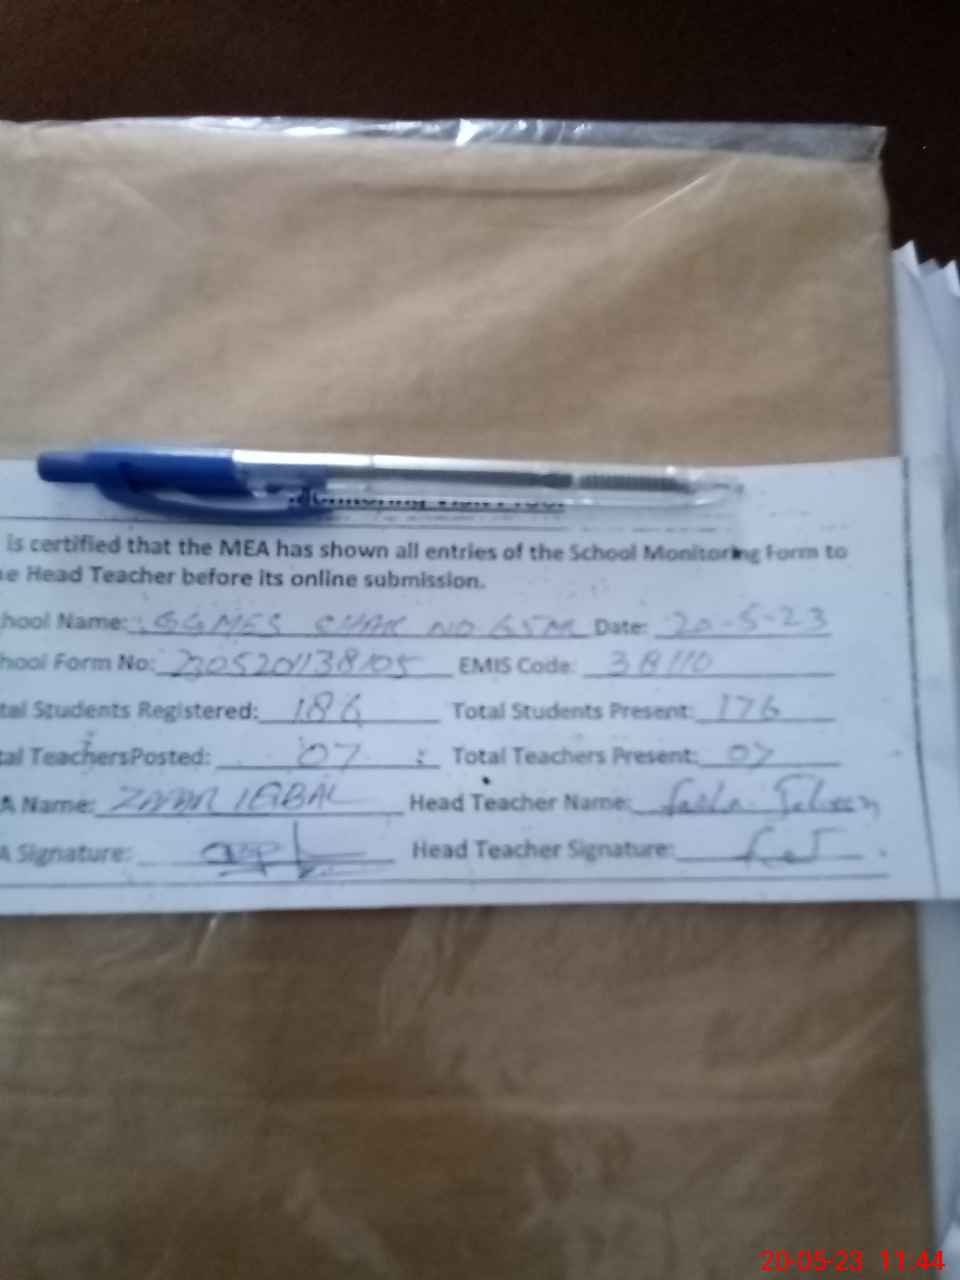 Monitoring Visit Proof
is certified that the MEA has shown all entries of the School Monitoring Form to
e Head Teacher before its online submission.
hool Name: GGMES CHAK NO. 65M Date: 20-5-23
hool Form No: 230520138105 EMIS Code: 38110
tal Students Registered: 186 Total Students Present: 176
tal TeachersPosted: 07 Total Teachers Present: 07
A Name: ZAFAR IQBAL Head Teacher Name:
A Signature: Head Teacher Signature:
20-05-23 11:44